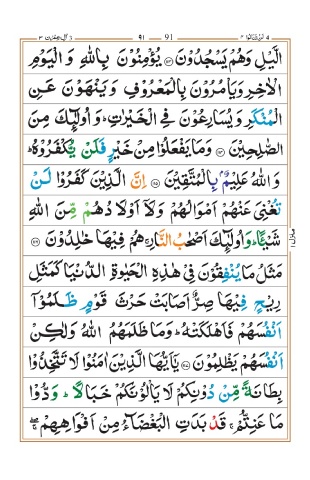 لن تنالوا ۴ ۹۱ 91 اٰل عمرٰن ۳
الَّيْلِ وَهُمْ يَسْجُدُوْنَ يُؤْمِنُوْنَ بِاللّٰهِ وَ الْيَوْمِ
الْاٰخِرِ وَيَاْمُرُوْنَ بِالْمَعْرُوْفِ وَيَنْهَوْنَ عَنِ
الْمُنْكَرِ وَيُسَارِعُوْنَ فِى الْخَيْرٰتِ ؕ وَاُولٰٓئِكَ مِنَ
الصّٰلِحِيْنَ وَمَا يَفْعَلُوْا مِنْ خَيْرٍ فَلَنْ يُّكْفَرُوْهُ ؕ
وَاللّٰهُ عَلِيْمٌۢ بِالْمُتَّقِيْنَ اِنَّ الَّذِيْنَ كَفَرُوْا لَنْ
تُغْنِىَ عَنْهُمْ اَمْوَالُهُمْ وَلَاۤ اَوْلَادُهُمْ مِّنَ اللّٰهِ
شَيْـًٔا ؕ وَاُولٰٓئِكَ اَصْحٰبُ النَّارِ ۚ هُمْ فِيْهَا خٰلِدُوْنَ
مَثَلُ مَا يُنْفِقُوْنَ فِىْ هٰذِهِ الْحَيٰوةِ الدُّنْيَا كَمَثَلِ
رِيْحٍ فِيْهَا صِرٌّ اَصَابَتْ حَرْثَ قَوْمٍ ظَلَمُوْۤا
اَنْفُسَهُمْ فَاَهْلَكَتْهُ ؕ وَمَا ظَلَمَهُمُ اللّٰهُ وَلٰكِنْ
اَنْفُسَهُمْ يَظْلِمُوْنَ يٰۤاَيُّهَا الَّذِيْنَ اٰمَنُوْا لَا تَتَّخِذُوْا
بِطَانَةً مِّنْ دُوْنِكُمْ لَا يَاْلُوْنَكُمْ خَبَالًا ؕ وَدُّوْا
مَا عَنِتُّمْ ۚ قَدْ بَدَتِ الْبَغْضَآءُ مِنْ اَفْوَاهِهِمْ ۖ